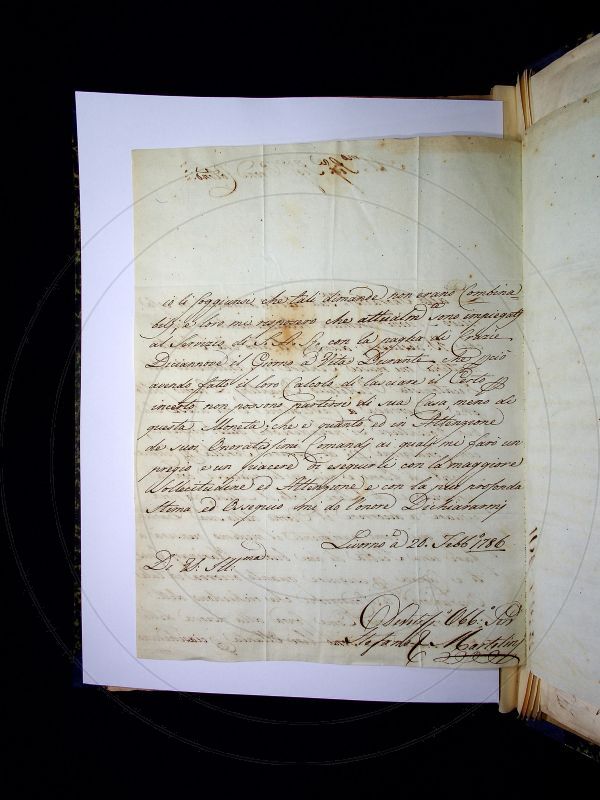 io li soggiunsi che tali dimande non erano Combina-
bili, e loro mi risposero che attualm.te sono impiegati
al Servizio di S. A. R. con la paga di Crazie
Diciannove il Giorno à Vita Durante, e da ciò
avendo fatto il loro Calcolo di lasciare il Certo p
incerto non possono partirsi di sua Casa meno di
questa Moneta; che è quanto, ed in Attenzione
de suoi Onoratissimi Comandi ai quali mi farò un
pregio e un piacere di eseguirli con la maggiore
ed Attenzione e con la più profonda
Stima ed Ossequio mi do l'onore Dichiararmi
Livorno à 20. Febb.o 1786
De V.S. Ill.ma
Obb. Ser
Stefano Martolini